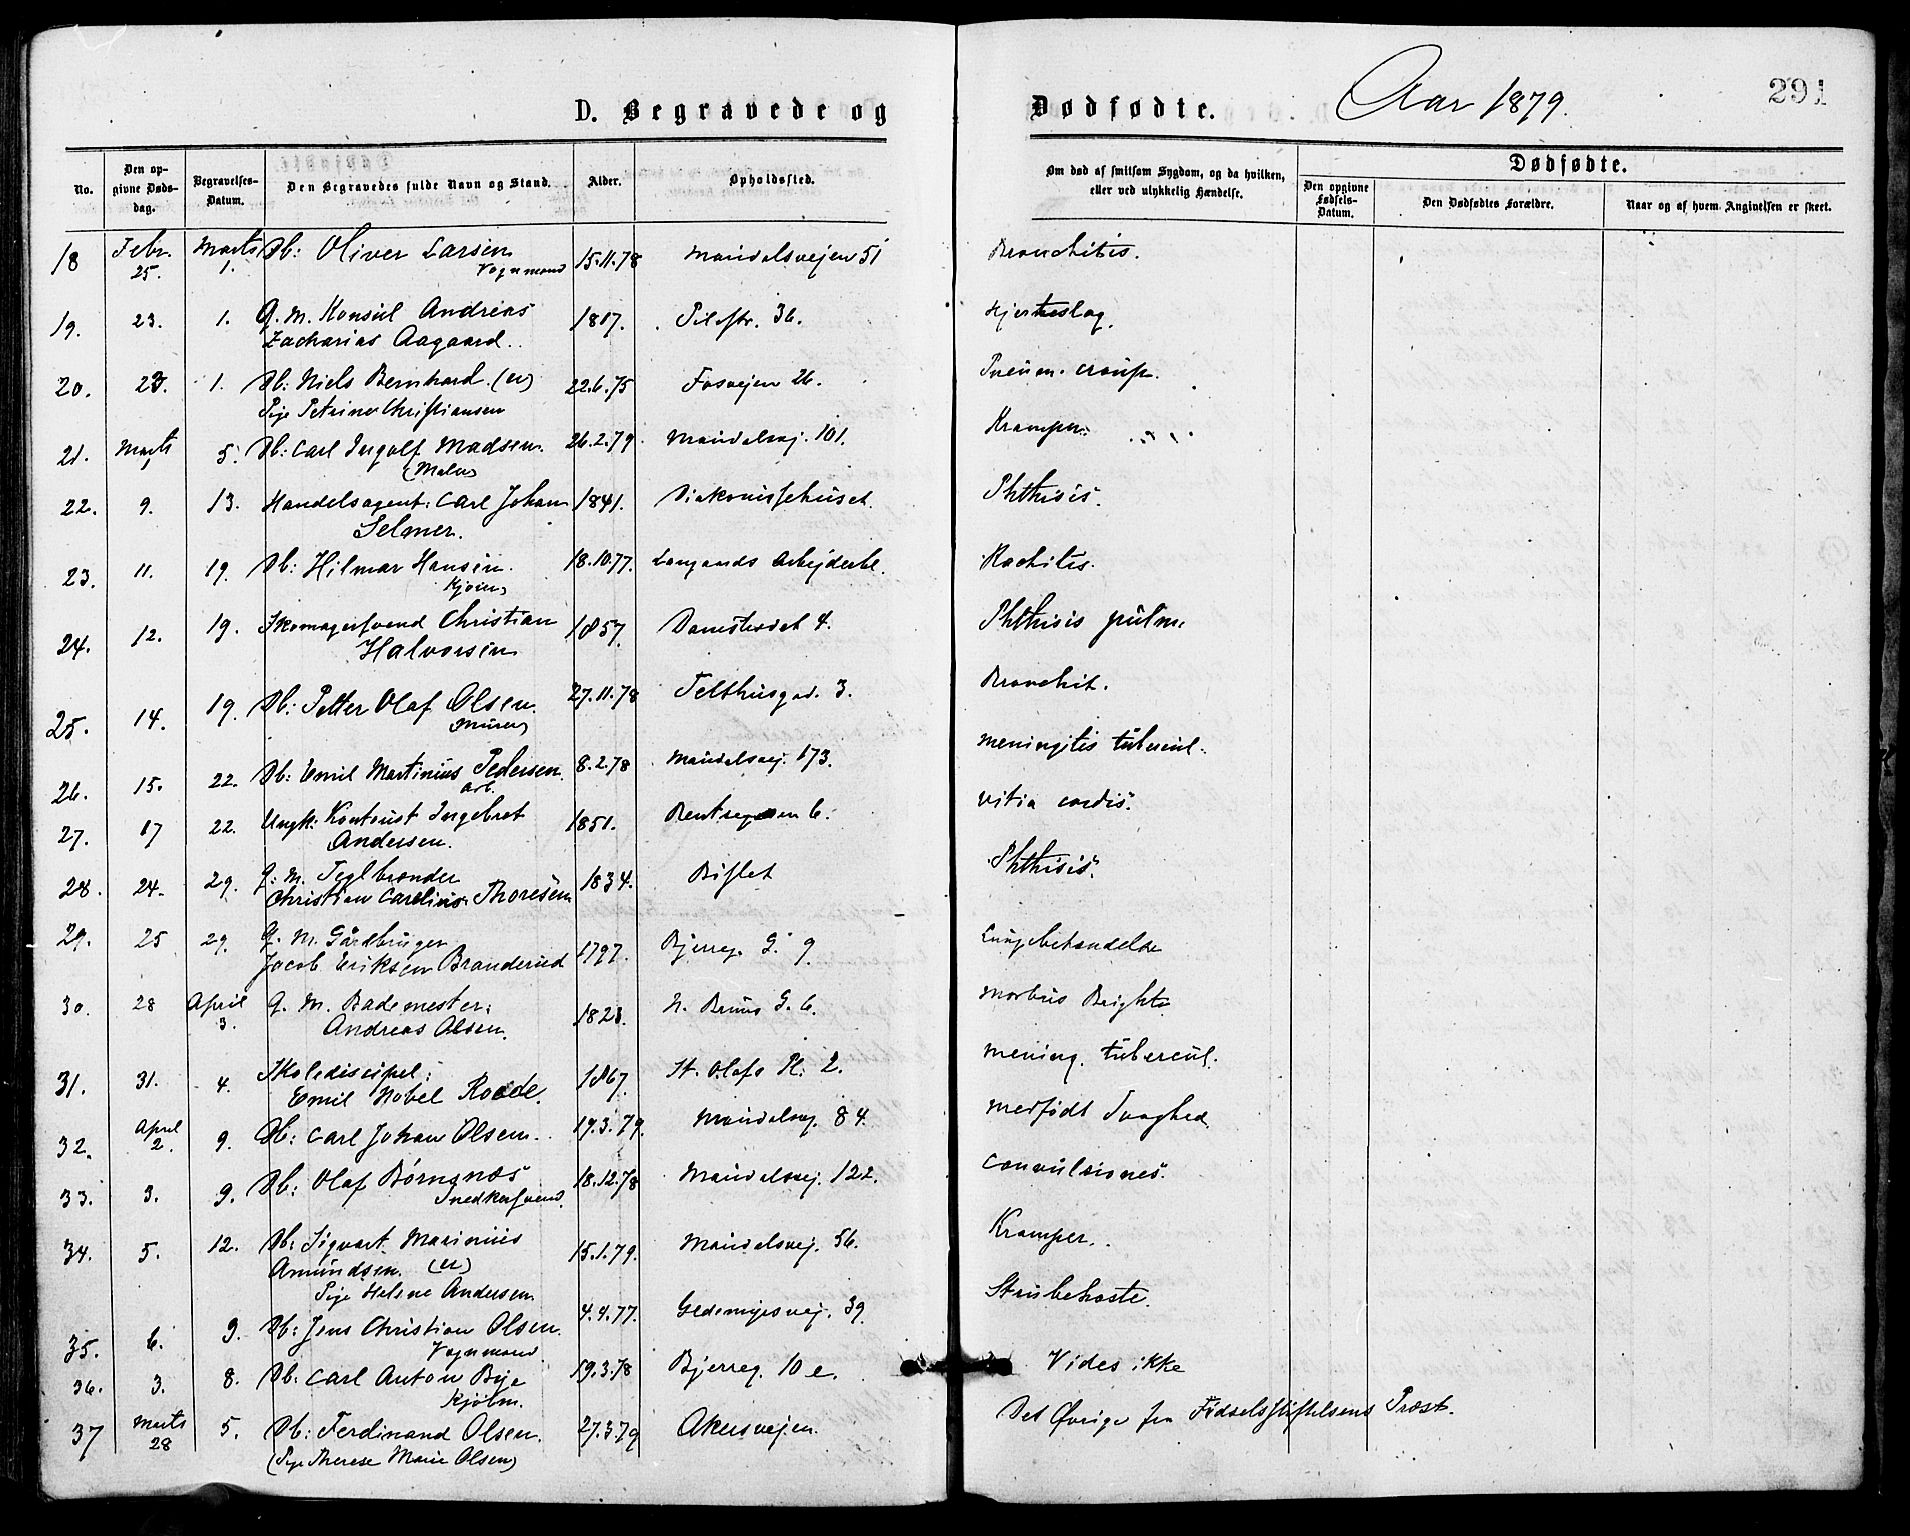 D. Begravede og Dødfødte. Aar 1879. 291
No.
Den opgivne Dødsdag.
Begravelses-Datum.
Den Begravedes fulde Navn og Stand.
Alder.
Opholdssted.
Om død af smitsom Sygdom, og da hvilken, eller ved ulykkelig Hændelse.
Dødfødte.
Den opgivne Fødsels-Datum.
Den Dødfødtes Forældre.
Naar og af hvem Angivelsen er skeet.
18 Febr. 25. Marts 1. Db: Oliver Larsen 15.11.78 Maridalsveien 51 Bronchitis.
Vognmand
19. 23. 1. G. M. Konsul Andreas 1817. Pilestr. 36. Hjerteslag.
Zacharias Aagaard.
20. 23. 1. Db: Niels Bernhard (u) 22.6.75 Fosvejen 26. Pneum. croup.
Pige Petrine Christiansen
21. Marts 1 5. Db: Carl Ingolf Madsen. 26.2.79 Maridalsvej. 101. Kramper.
(Maler)
22. 9. 13. Handelsagent: Carl Johan 1841. Diakonissehuset. Phthisis.
Selmer.
23. 11. 19. Db: Hilmar Hansen. 18.10.77. Langaards Arbejderbl. Rachitis.
24. 12. 19. Skomagersvend Christian 1857. Damstredet 4. Phthisis pulm.
Halvorsen
25. 14. 19. Db: Petter Olaf Olsen. 27.11.78 Telthusgad. 3. Bronchit.
(Murer)
26. 15. 22. Db: Emil Martinius Pedersen. 8.2.78 Maridalsvej. 173. Meningitis tubercul.
arb.
27. 17 22. Ungk: Kontorist Ingebret 1851. Bentsegaden 6. Vitia cordis.
Andersen.
28. 24. 29. G. M. Teglbrænder 1834. Bislet Phthisis.
Christian Carelius Thoresen
29. 25 29. G. M. Gårdbruger 1797. Bjerreg. G. 9
Jacob Eriksen Branderud
30. 28 April 3. G. M. Bademester: 1823. N. Bruns G. 6. Morbus Brightii
Andreas Olsen.
31. 31. 4. Skoledisicipel: 1867. St. Olafs Pl. 2. Mening. tubercul.
Emil Nobel Roede.
32. April 2. 9. Db: Carl Johan Olsen. 19.3.79. Maridalsvej. 84. Medfødt Svaghed.
33. 3. 9. Db: Olaf Børngnæs 18.12.78 Maridalsvej. 122. Convulsiones.
Snedkersvend.
34. 5. 12. Db: Sigvart Marinius 15.1.79. Maridalsvej. 56. Kramper.
Amundsen. (u)
Pige Helene Andersen
35. 6. 9. Db: Jens Christian Olsen. 4.4.77. Geitemyrsvej. 39. Strubehoste.
Vognmand.
36. 3. 8. Db: Carl Anton Bye 19.3.78 Bjerreg. 10 e. Vides ikke
Kjøbm.
37 Marts 28 5. Db: Ferdinand Olsen. 27.3.79 Akersvejen. Det Øvrige fra Fødselsstiftelsens Præst.
(Pige Therese Marie Olsen)